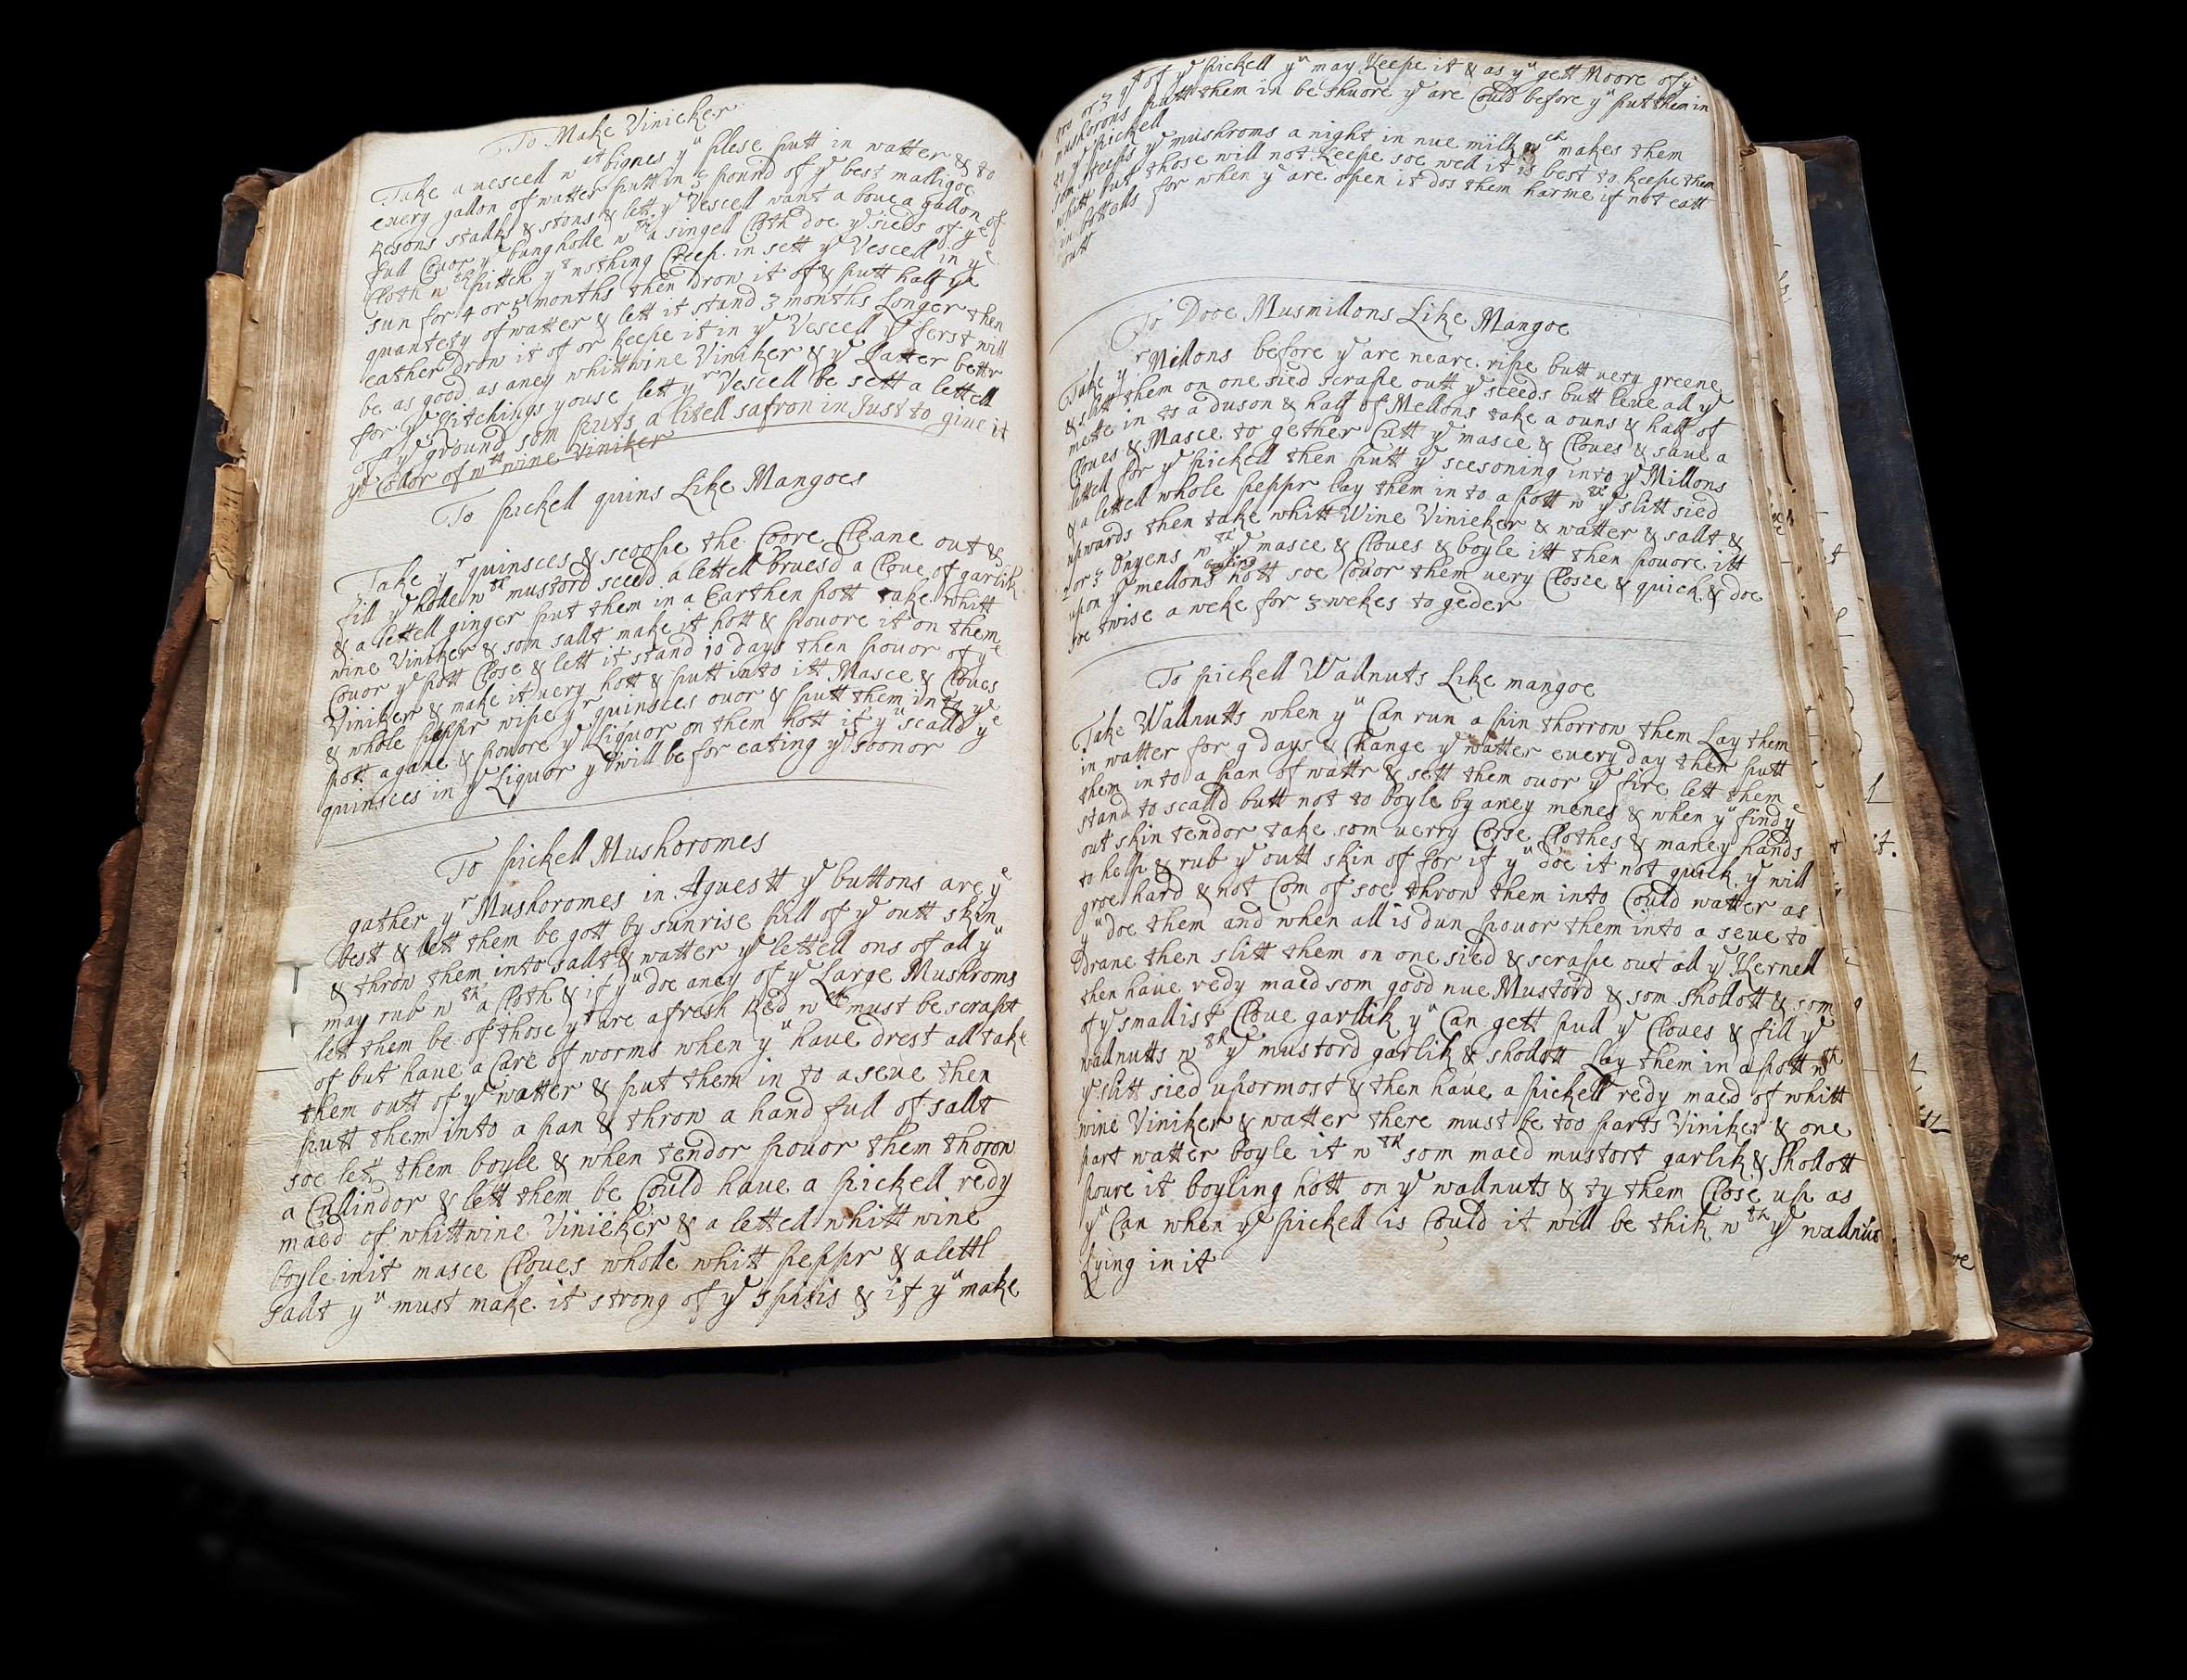 To Make Vinicker
Take a vescell wtt bignes yu plese putt in watter & to
euery gallon of watter putt in 5 pound of ye best malligoe
Resons stalks & stons & lett ye Vescell want a boue a gallon of
full Couor ye bunghole wth a singell Cloth doe ye sieds of ye
Cloth wth pittch yt nothing Creep in sett ye Vescell in ye
sun for 4 or 5 months then drow it of & putt half ye
quantety of watter & lett it stand 3 months Longer then
eather drow it of or keepe it in ye Vescell ye ferst will
be as good as aney whittwine Viniker & ye Latter bettr
for ye pitchings youse lett yr Vescell be sett a lettell
of ye ground som puts a litell safron in Just to giue it
ye Collor of wtt wine Viniker
To pickell quins Like Mangoes
Take yr quinsces & scoope the Coore Cleane out &
fill ye holle wth mustord seed a lettell bruesd a Cloue of garlik
& a lettell ginger put them in a Earthen pott take whitt
wine Viniker & som sallt make it hott & pouore it on them
Couor ye pott Close & lett it stand 10 days then pouor of ye
Viniker & make it uery hott & putt into itt Masce & Cloues
& whole peppr wipe yr quinsces ouor & putt them into ye
pott agane & pouore ye Liquor on them hott if yu scalld ye
quinsces in ye Liquor yt will be for eating ye soonor
To pickell Mushoromes
gather yr Mushoromes in Aguestt ye buttons are ye
bestt & lett them be gott by sunrise pull of ye outt skin
& throw them into sallt & watter ye lettell ons of all yu
may rub wth a Cloth & if yu doe aney of ye Large Mushroms
lett them be of those yt are afresh Red wch must be scrapt
of but haue a Care of worms when yu haue drest all take
them outt of ye watter & put them in to a seue then
putt them into a pan & throw a hand full of sallt
soe lett them boyle & when tendor pouor them thorow
a Cullindor & lett them be Could haue a pickell redy
maed of whittwine Vinieker & a lettell whitt wine
boyle in it masce Cloues wholle whitt peppr & a lettl
sallt yu must make it strong of ye spisis & if yu make
two or 3 qt of ye pickell yu may Keepe it & as yu gett Moore of ye
mushorons putt them in be shuore ye are Could before yu put them in
to ye pickell
som steeps ye mushroms a night in nue milk wch makes them
whitt but those will not Keepe soe well it is best to keepe them
in bottalls for when ye are open it dos them harme if not eatt
outt
To Dooe Musmillons Like Mangoe
Take yr Millons before ye are neare ripe butt uery greene
& slitt them on one sied scrape outt ye sceeds butt leue all ye
mette in to a duson & half of Mellons take a ouns & half of
Cloues & Masce to gether Cutt ye masce & Cloues & saue a
lettell for ye pickell then putt ye scesoning into ye Millons
& a lettell whole peppr lay them in to a pott wth ye slitt sied
upwards then take whitt Wine Vinieker & watter & sallt &
2 or 3 Onyens wth ye masce & Cloues & boyle itt then pouore itt
upon ye mellons boyling hott soe Couor them uery Closce & quick & doe
soe twise a weke for 3 wekes to geder
To pickell Wallnuts Like mangoe
Take Wallnutts when yu Can run a pin thorrow them Lay them
in watter for 9 days & Change ye watter euery day then putt
them in to a pan of wattr & sett them ouor ye fire lett them
stand to scalld butt not to boyle by aney menes & when yu find ye
out skin tendor take som uerry Corse Clothes & maney hands
to help & rub ye outt skin of for if yu doe it not quick ye will
groe hard & not Com of soe throw them into Could watter as
yu doe them and when all is dun pouor them into a seue to
Drane then slitt them on one sied & scrape out all ye Kernell
then haue redy maed som good nue Mustord & som shollott & som
of ye smallist Cloue garllik yu Can gett pull ye Cloues & fill ye
wallnutts wth ye mustord garlik & shollott Lay them in a pott wth
ye slitt sied upormost & then haue a pickell redy maed of whitt
wine Viniker & watter there must be too parts Viniker & one
part watter boyle it wth som maed mustort garlik & Shollott
poure it boyling hott on ye wallnuts & ty them Close up as
yu Can when ye pickell is Could it will be thik wth ye wallnus
Lying in it